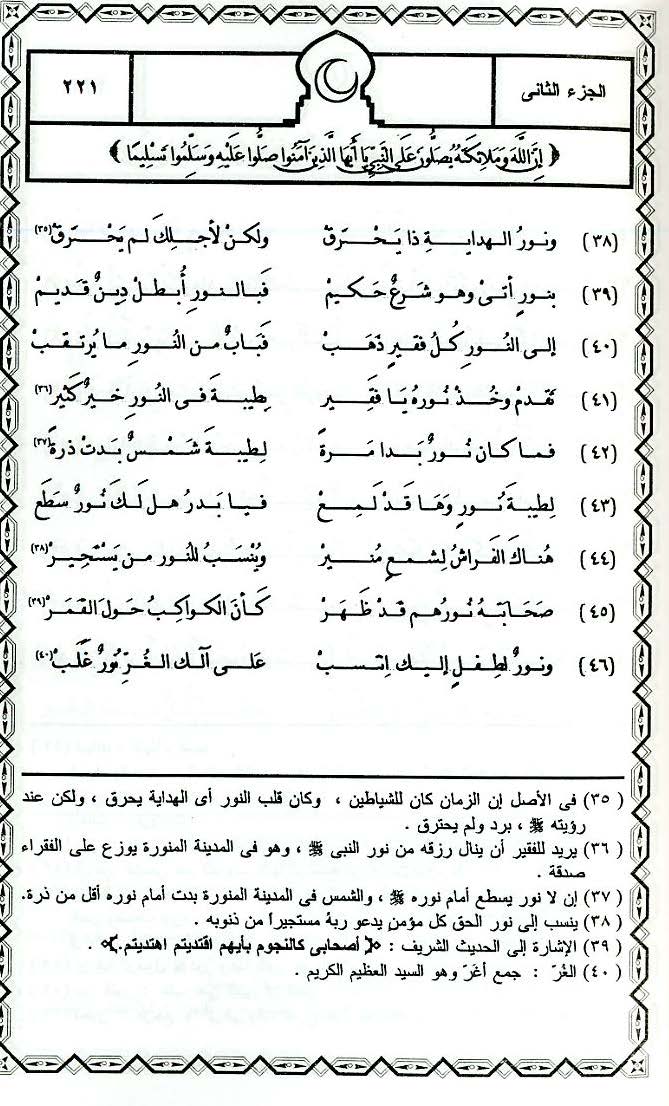 الجزء الثانى
٢٢١
﴿ إِنَّ اللَّهَ وَمَلَائِكَتَهُ يُصَلُّونَ عَلَى النَّبِيِّ يَا أَيُّهَا الَّذِينَ آمَنُوا صَلُّوا عَلَيْهِ وَسَلِّمُوا تَسْلِيمًا ﴾
(٣٨) ونورُ الـهدايـةِ ذا يَـحْـرّقْ ولكنْ لأجـلِـكَ لـم يَـحْـرّقْ (٣٥)
(٣٩) بنورٍ أتىْ وهو شَرعٌ حَكيمْ فَبالـنورِ أُبـطـلْ دِينٌ قَديـمْ
(٤٠) إلى النُـورِ كُـلُ فقيرٍ ذهَـبْ فَبابٌ من النُـورِ ما يُرتـقـبْ
(٤١) تَقدمْ وخُـذْ نورهُ يَـا فَقِـيـرْ بِطيبـةَ فـى النورِ خـيرٌ كَثيرْ (٣٦)
(٤٢) فـمـا كـان نُـورٌ بَـدا مَـرةً لِـطيـبةَ شَـمْـسٌ بَدتْ ذرةً (٣٧)
(٤٣) لِطيبةَ نُورٍ وَهَـا قَـدْ لَـمِـعْ فـيـا بَـدرُ هـل لَـكَ نُـورٌ سَطَع
(٤٤) هُناكَ الفَراشُ لِشمعٍ مُنـيـرْ ويُنْسَـبُ للنُـور مـن يَـسْـتجيـرْ (٣٨)
(٤٥) صَحَابَتـهُ نُـورُهـم قَـدْ ظَهَـرْ كَـأنَ الكـواكِبُ حَـولَ القَمَـرْ (٣٩)
(٤٦) ونـورٌ لطِـفـلٍ إليـك انتسـبْ عَلَـى آلـك الغُـرِّ نورٌ غَلَبْ (٤٠)
( ٣٥) فى الأصل إن الزمان كان للشياطين ، وكان قلب النور أى الهداية يحرق ، ولكن عند
رؤيته ﷺ ، برد ولم يحترق .
( ٣٦) يريد للفقير أن ينال رزقه من نور النبى ﷺ ، وهو فى المدينة المنورة يوزع على الفقراء
صدقة .
( ٣٧) إن لا نور يسطع أمام نوره ﷺ ، والشمس فى المدينة المنورة بدت أمام نوره أقل من ذرة.
( ٣٨) ينسب إلى نور الحق كل مؤمنٍ يدعو ربهُ مستجيراً من ذنوبه .
( ٣٩) الإشارة إلى الحديث الشريف : ﴿ أصحابى كالنجوم بأيهم اقتديتم اهتديتم.﴾ .
( ٤٠) الغُرّ : جمع أغرّ وهو السيد العظيم الكريم .